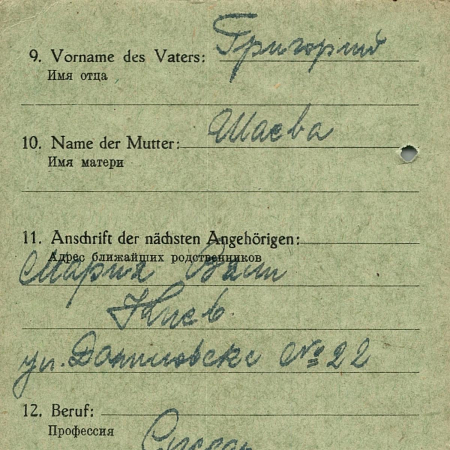 9. Vorname des Vaters: Григорий
Имя отца
10. Name der Mutter: Шаева
Имя матери
11. Anschrift der nächsten Angehörigen:
Адрес ближайших родственников
Мария
Киев
ул. № 22
12. Beruf:
Профессия
Слесарь